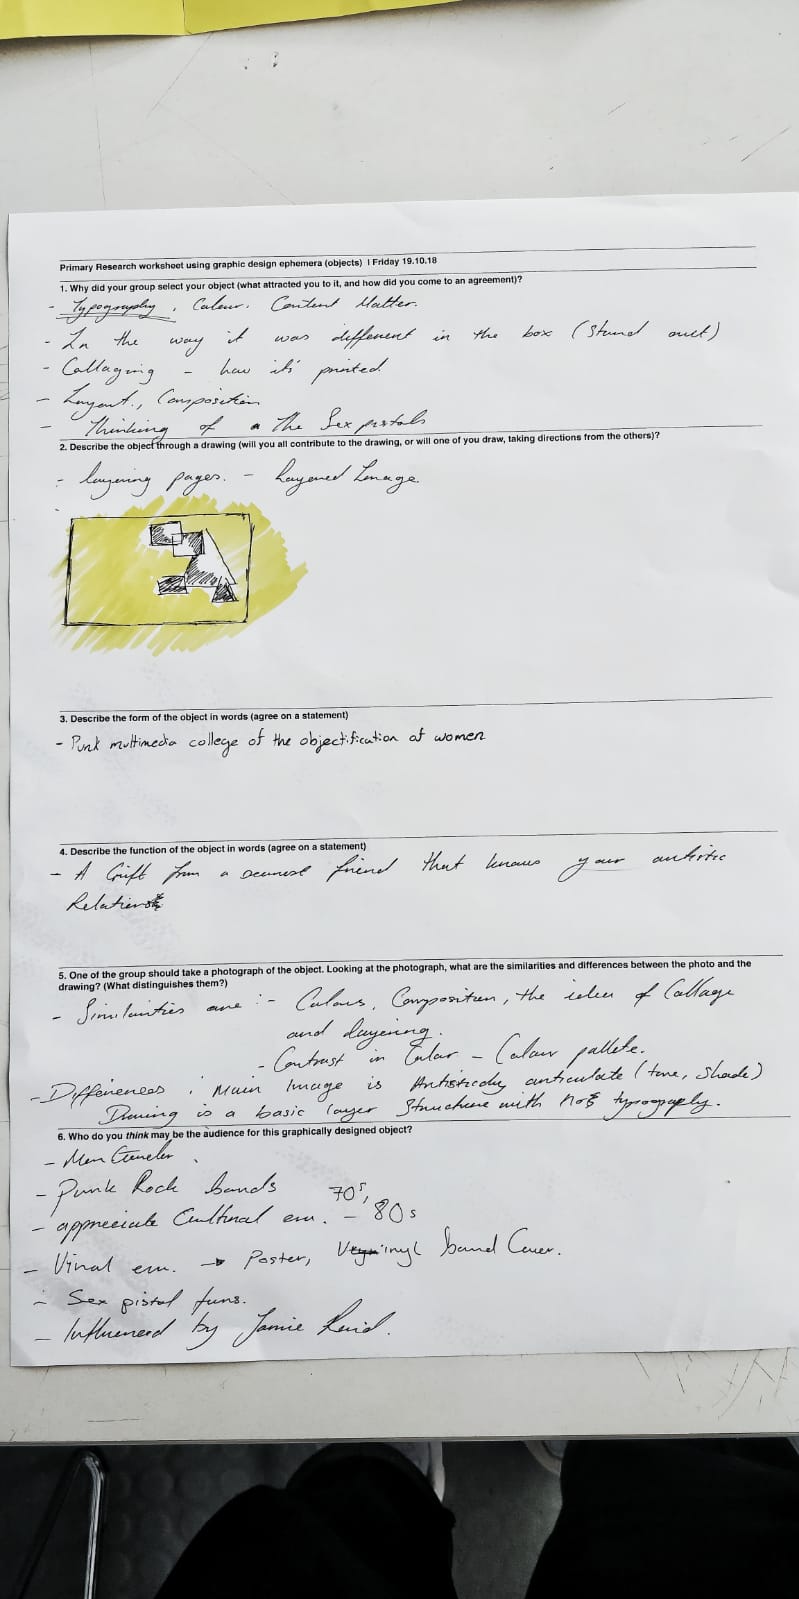 Primary Research worksheet using graphic design ephemera (objects) | Friday 19.10.18
1. Why did your group select your object (what attracted you to it, and how did you come to an agreement)?
- Typography, Colour. Content Matter.
- In the way it was different in the box (Stand out)
- Collaging - how it's printed
- Layout, Composition
- Thinking of The Sex pistols
2. Describe the object through a drawing (will you all contribute to the drawing, or will one of you draw, taking directions from the others)?
- layering pages. - Layered Image
3. Describe the form of the object in words (agree on a statement)
- Punk multimedia college of the objectification of women
4. Describe the function of the object in words (agree on a statement)
- A Grift from a friend that knows your artistic
Relations
5. One of the group should take a photograph of the object. Looking at the photograph, what are the similarities and differences between the photo and the
drawing? (What distinguishes them?)
- Similarities are :- Colours, Composition, the idea of Collage
and layering.
- Contrast in Color - Colour pallete.
- Differences : Main Image is Artisticly articulate (tone, Shade)
Drawing is a basic layer Structure with not typography.
6. Who do you think may be the audience for this graphically designed object?
- Men
- Punk Rock bands 70s,
- appreciate Cultural era. - 80s
- Vinal era. → Poster, Vinyl band Cover.
- Sex pistol fans.
- Influenced by Jamie Reid.